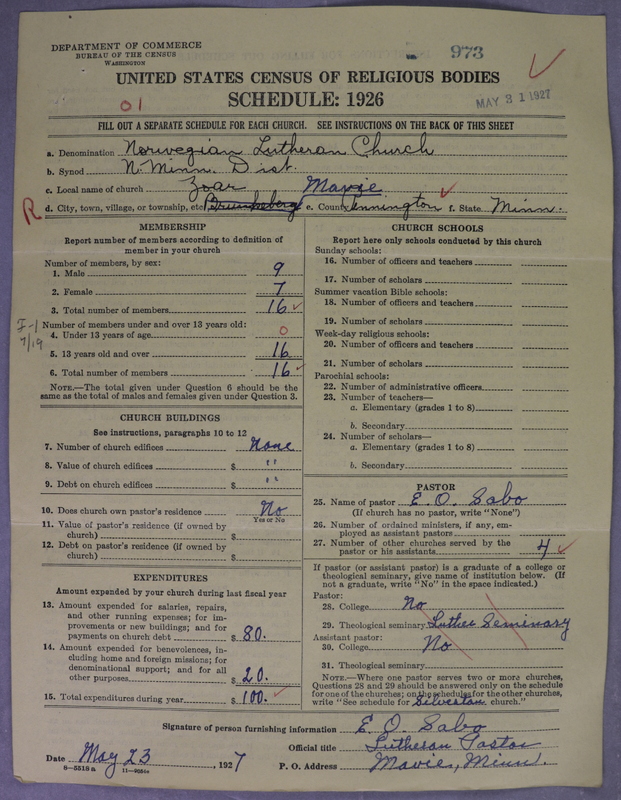 DEPARTMENT OF COMMERCE
BUREAU OF THE CENSUS
WASHINGTON
973
UNITED STATES CENSUS OF RELIGIOUS BODIES
SCHEDULE: 1926
01
MAY 31 1927
FILL OUT A SEPARATE SCHEDULE FOR EACH CHURCH. SEE INSTRUCTIONS ON THE BACK OF THIS SHEET
a. Denomination Norwegian Lutheran Church
b. Synod N. Minn. Dist.
c. Local name of church Zoar Mavie
R d. City, town, village, or township, etc. e. County Pennington f. State Minn.
MEMBERSHIP
Report number of members according to definition of
member in your church
Number of members, by sex:
1. Male 9
2. Female 7
3. Total number of members 16
I-1
7/19
Number of members under and over 13 years old:
4. Under 13 years of age 0
5. 13 years old and over 16
6. Total number of members 16
NOTE.—The total given under Question 6 should be the
same as the total of males and females given under Question 3.
CHURCH BUILDINGS
See instructions, paragraphs 10 to 12
7. Number of church edifices None
8. Value of church edifices $ "
9. Debt on church edifices $ "
10. Does church own pastor's residence No
Yes or No
11. Value of pastor's residence (if owned by
church) $
12. Debt on pastor's residence (if owned by
church) $
EXPENDITURES
Amount expended by your church during last fiscal year
13. Amount expended for salaries, repairs,
and other running expenses; for im-
provements or new buildings; and for
payments on church debt $ 80.
14. Amount expended for benevolences, in-
cluding home and foreign missions; for
denominational support; and for all
other purposes $ 20.
15. Total expenditures during year $ 100.
CHURCH SCHOOLS
Report here only schools conducted by this church
Sunday schools:
16. Number of officers and teachers
17. Number of scholars
Summer vacation Bible schools:
18. Number of officers and teachers
19. Number of scholars
Week-day religious schools:
20. Number of officers and teachers
21. Number of scholars
Parochial schools:
22. Number of administrative officers
23. Number of teachers—
a. Elementary (grades 1 to 8)
b. Secondary
24. Number of scholars—
a. Elementary (grades 1 to 8)
b. Secondary
PASTOR
25. Name of pastor E. O. Sabo
(If church has no pastor, write "None")
26. Number of ordained ministers, if any, em-
ployed as assistant pastors
27. Number of other churches served by the
pastor or his assistants 4
If pastor (or assistant pastor) is a graduate of a college or
theological seminary, give name of institution below. (If
not a graduate, write "No" in the space indicated.)
Pastor:
28. College No
29. Theological seminary Luther Seminary
Assistant pastor:
30. College No
31. Theological seminary
NOTE.—Where one pastor serves two or more churches,
Questions 28 and 29 should be answered only on the schedule
for one of the churches; on the schedules for the other churches,
write "See schedule for Silverton church."
Signature of person furnishing information E. O. Sabo
Official title Lutheran Pastor
Date May 23, 1927 P. O. Address Mavie, Minn.
8—5518 a 11—9054r